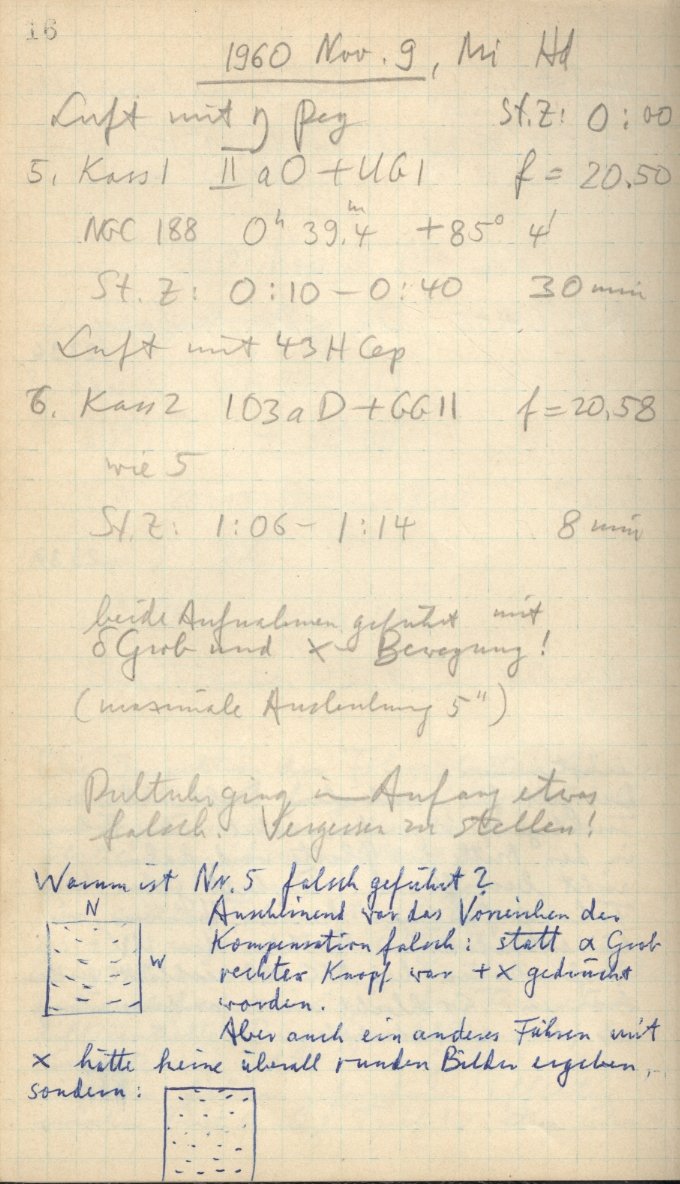 16
1960 Nov. 9, Mi Hd
Luft mit η Peg St.Z: 0:00
5. Kass 1 II a O + UG 1 f = 20.50
NGC 188 0ʰ 39.ᵐ4 +85° 4'
St. Z: 0:10 – 0:40 30 min
Luft mit 43 H Cep
6. Kass 2 103 a D + GG 11 f = 20,58
wie 5
St.Z: 1:06 – 1:14 8 min
beide Aufnahmen geführt mit
δ Grob und x- Bewegung!
(maximale Auslenkung 5")
Pultuhr ging im Anfang etwas
falsch. Vergessen zu stellen!
Warum ist Nr. 5 falsch geführt?
N
Anscheinend war das Vorzeichen der
Kompensation falsch: statt α Grob
W
rechter Knopf war + x gedrückt
worden.
Aber auch ein anderes Führen mit
x hätte keine überall runden Bilder ergeben,
sondern: